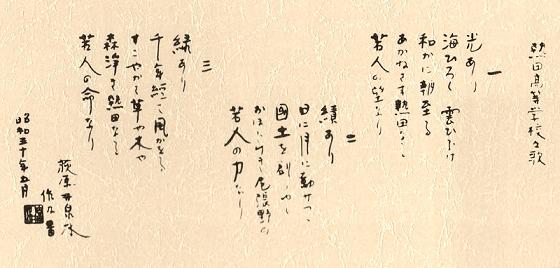 熱田高等学校々歌
一
光あり
海ひろく 雲ひらけ
和かに朝至る
あかねさす熱田なる
若人の望なり
二
績あり
日に月に動きつつ
国土を
尾張野の
若人の力なり
三
緑あり
千年経し風かをる
すこやかに草や木や
森浄き熱田なる
若人の命なり
昭和三十年五月
荻原井泉水
作及書